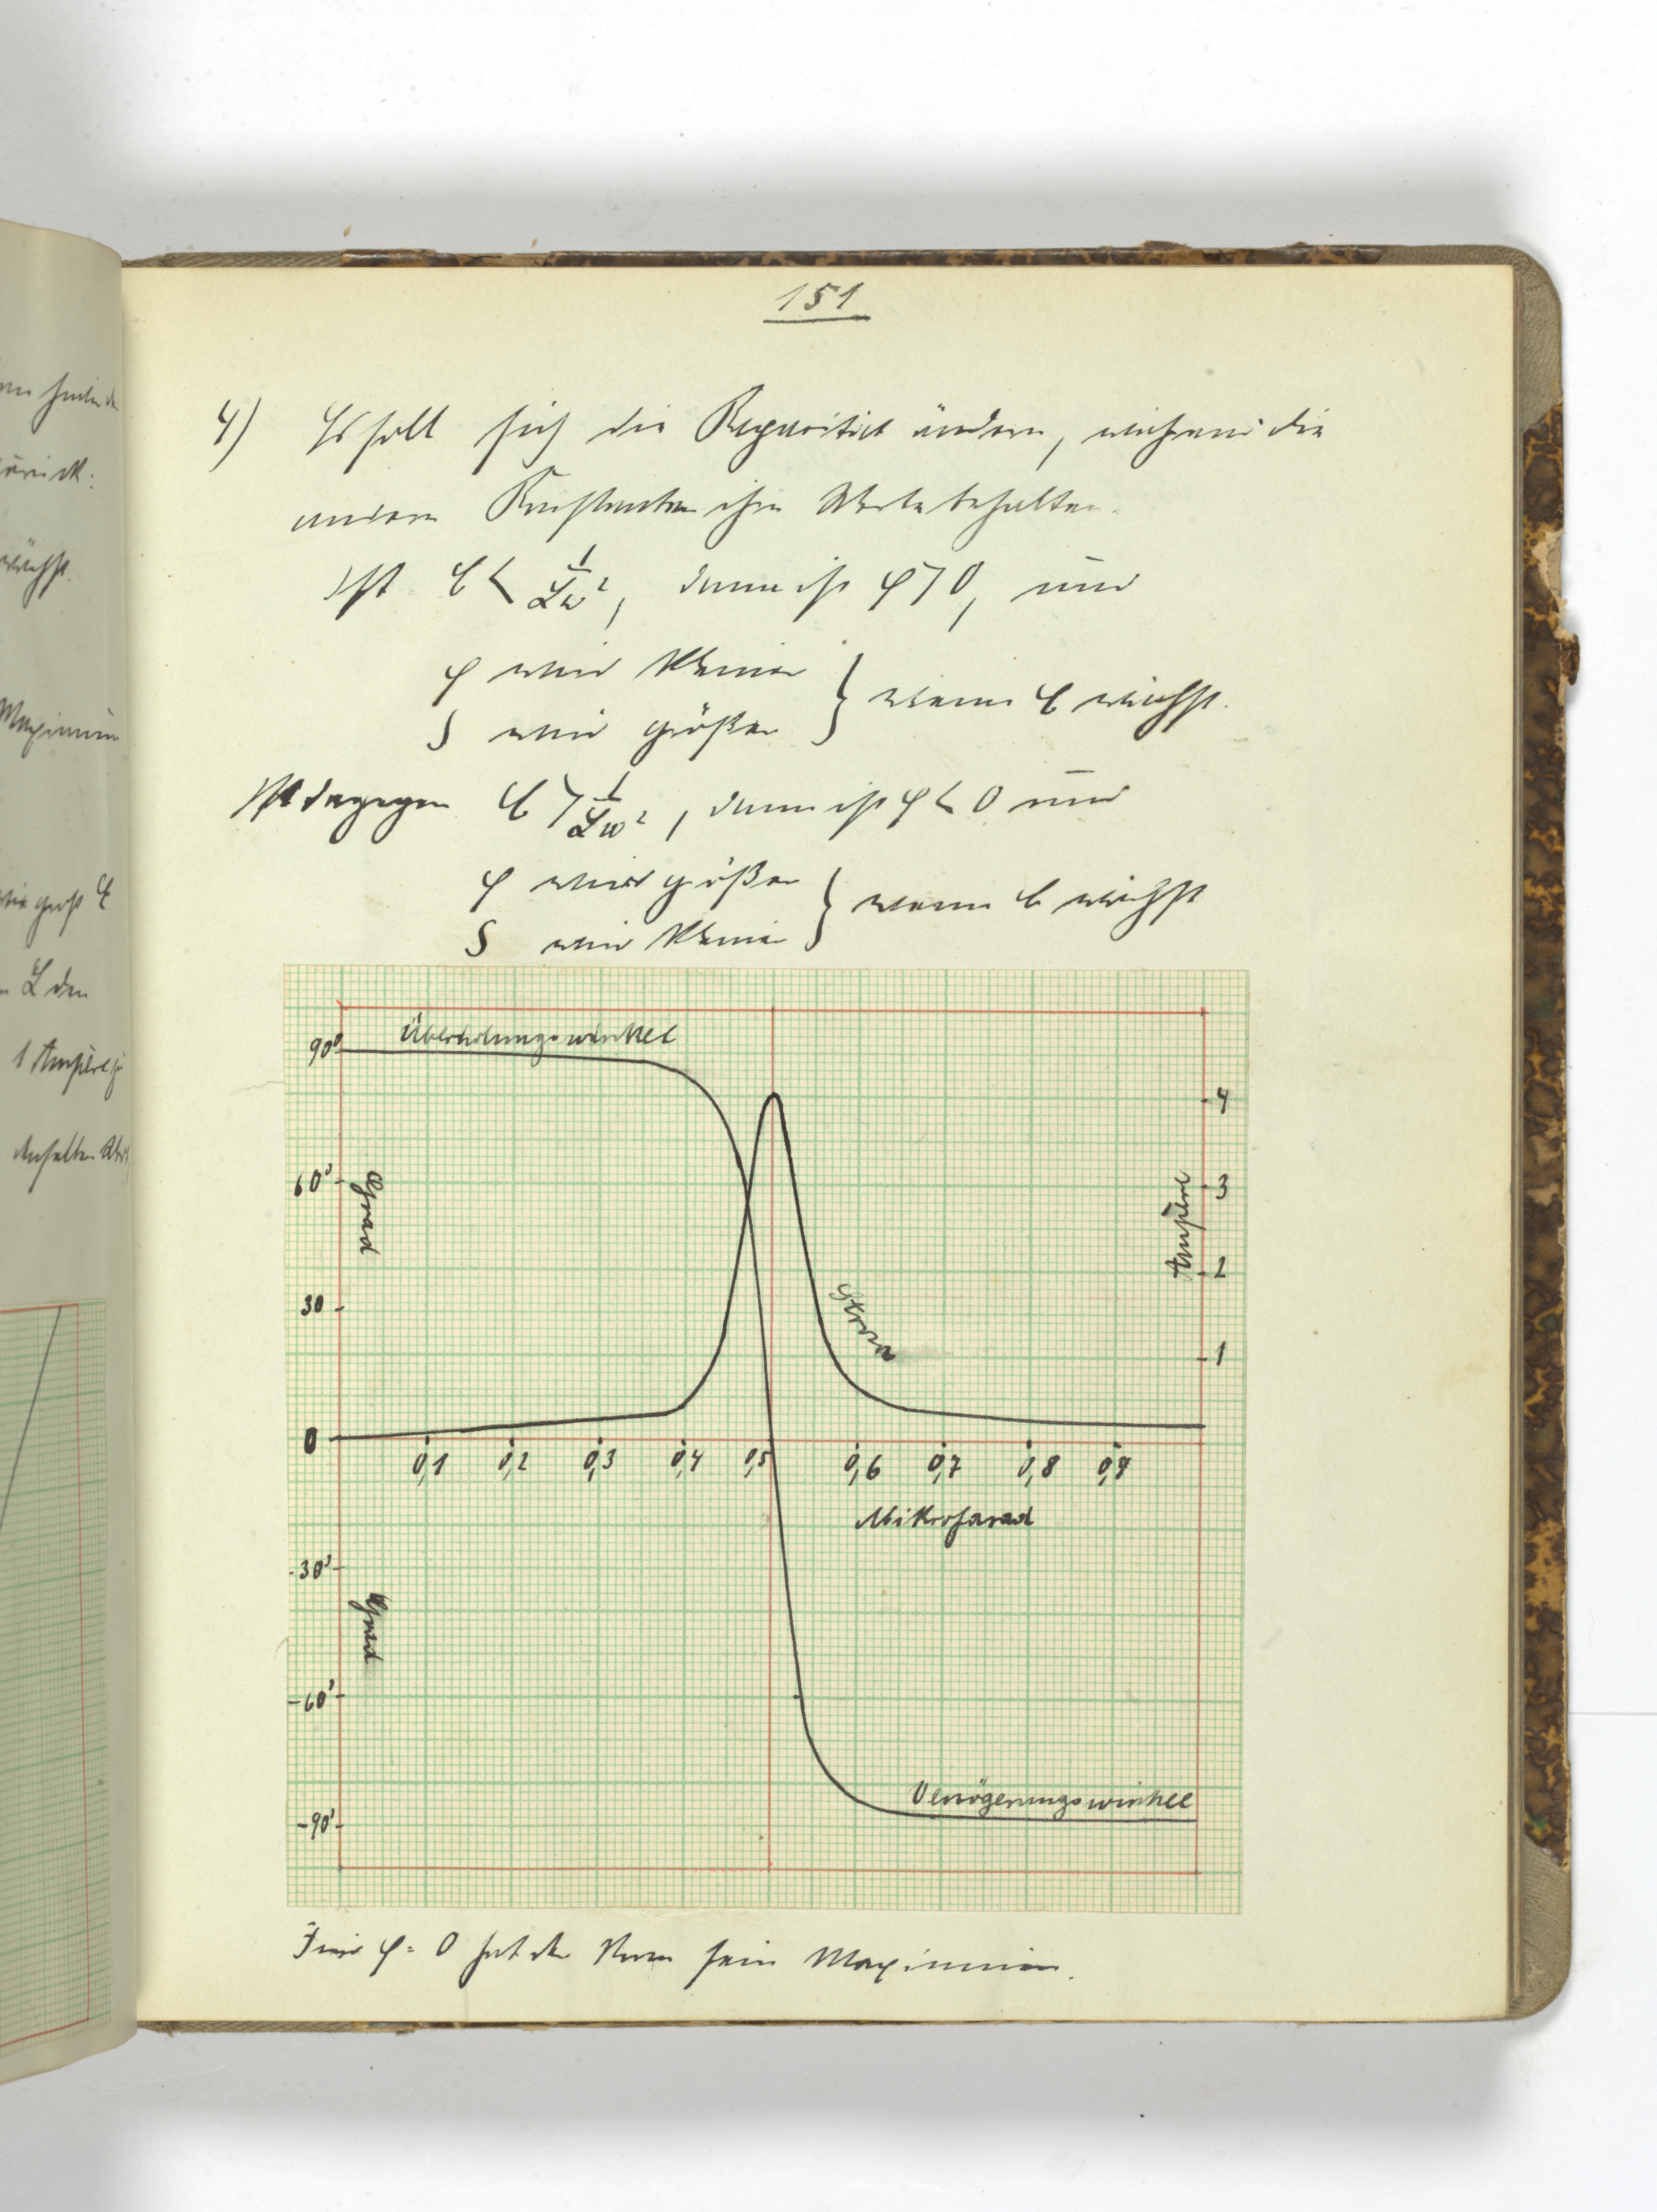 151
4) Es soll sich die Kapacität ändern, während die
andern Konstanten ihre Werte behalten.
Ist C < 1/Lω², dann ist φ > 0, und
φ wird kleiner
J wird größer } wenn C wächst.
Ist dagegen C > 1/Lω², dann ist φ < 0 und
φ wird größer
J wird kleiner } wenn C wächst
Überholungswinkel
90°
60°
30
0
-30°
-60°
-90°
Grad
Grad
4
3
2
1
Ampère
Strom
0,1 0,2 0,3 0,4 0,5 0,6 0,7 0,8 0,9
Mikrofarad
Verzögerungswinkel
Für φ = 0 hat der Strom sein Maximum.
wächst.
Maximum
wie groß C
L den
1 Ampère